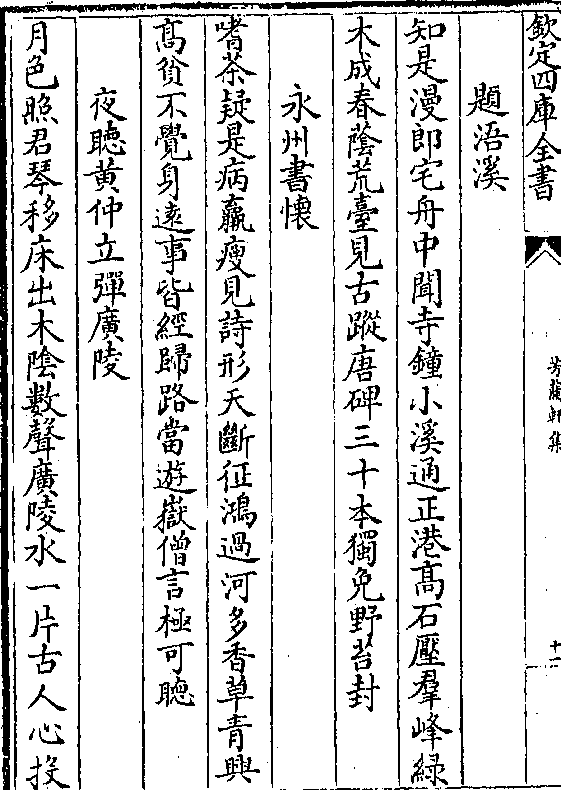 欽定四庫全書
芳蘭軒集
十一
題浯溪
知是漫郎宅舟中聞寺鐘小溪通正港髙石壓羣峰緑
木成春蔭荒臺見古蹤唐碑三十本獨免野苔封
永州書懷
嗜茶疑是病羸瘦見詩形天斷征鴻過河多香草青興
髙貧不覺身逺事皆經歸路當遊嶽僧言極可聴
夜聴黄仲立彈廣陵
月色照君琴移床出木陰數聲廣陵水一片古人心投